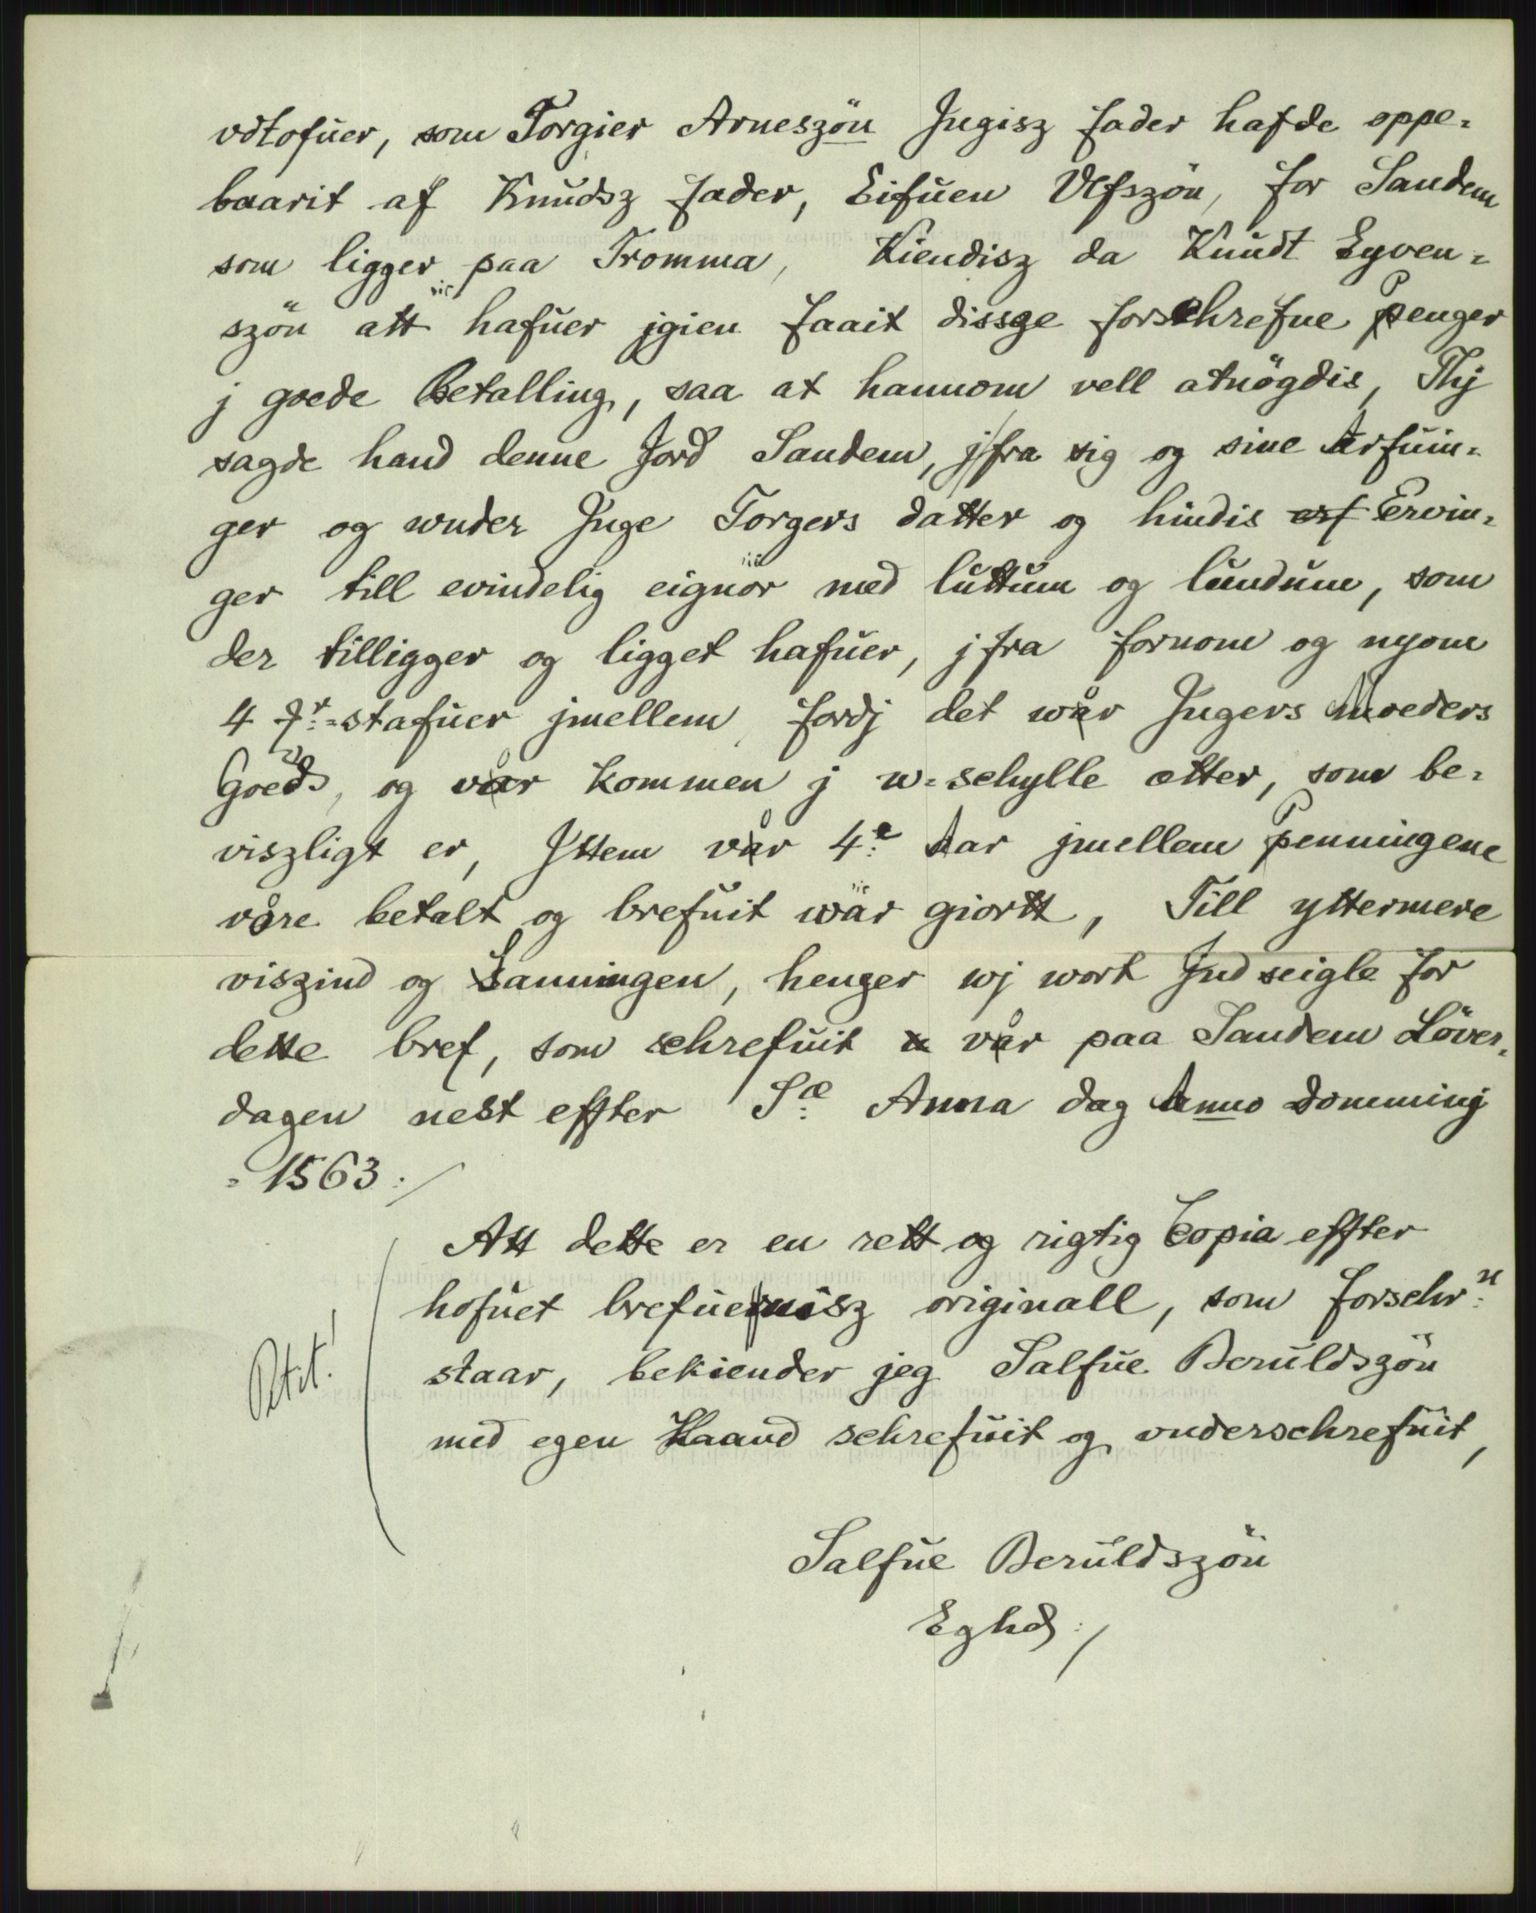 vdtofuer, som Torgier Arneszön Jngisz fader hafde oppe=
baarit af Knudsz fader, Eifuen Vlfszön, for Sandem
som ligger paa Tromma, Kiendisz da Knudt Eyven=
szön att hafuer jgien faait dissze forschrefne Penger
j goede Betalling, saa at hannom vell atnögdis, Thj
sagde hand denne Jord Sandem, j fra sig og sine Arfuin=
ger og wnder Jnge Torgers datter og hindis erf Ervin=
ger till evindelig eignör med luttum og lundum, som
der tilligger og ligget hafuer, j fra fornom og nyom
4 =stafuer jmellem, fordj det wår Jngers Moeders
Goeds, og vår kommen j w=schylle etter, som be=
viszligt er, Jttem vår 4e: Aar jmellem Penningene
våre betalt og brefuit wår giortt, Till yttermere
viszind og Sanningen, henger wj wort Jndseigle for
dette bref, som schrefuit vår paa Sandem Löver=
dagen nest effter Sæ: Anna dag Anno Domminj
=1563:/
Att dette er en rett og rigtig Copia effter
hofuet brefue originall, som forschr:n
staar, bekiender jeg Salfue Beruldszön
med egen Haand schrefuit og vnderschrefuit,
Petit!
Salfue Beruldszön
Eghd:/